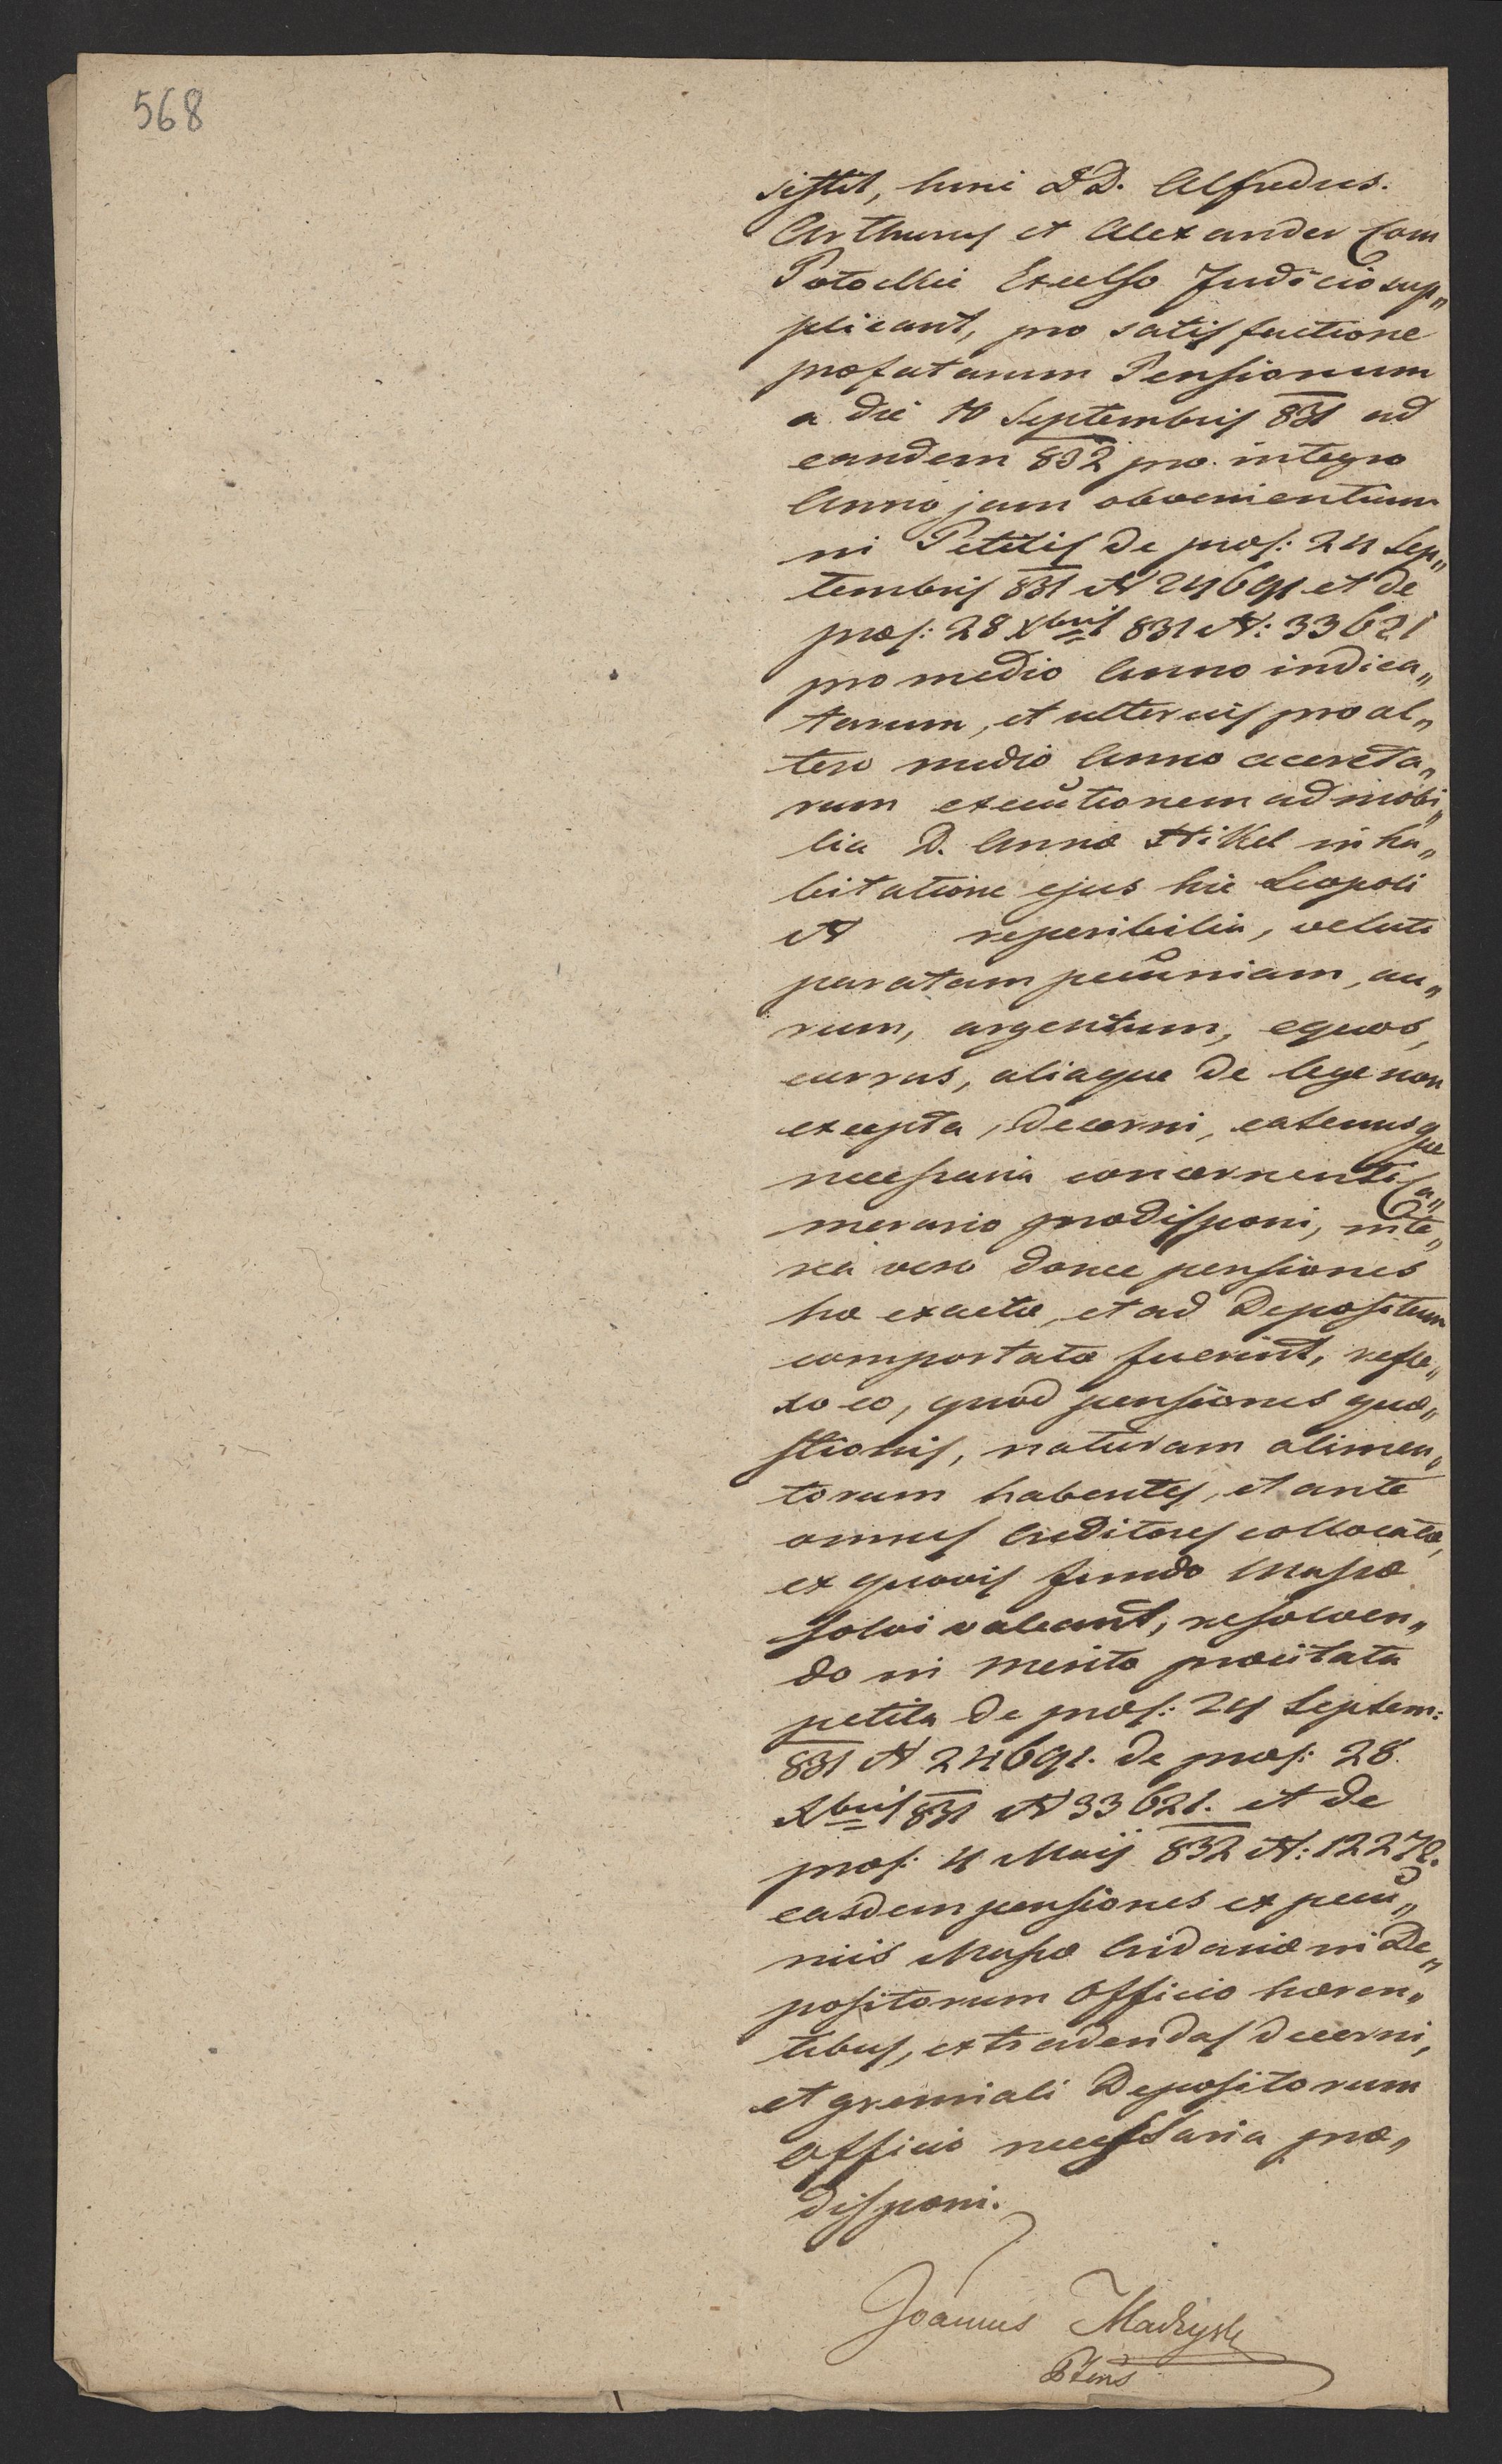 568
sistit, huni DD. Alfredus.
Arthurus et Alexander Com
Potockie Excelso Judicio sup„
plicant, pro satisfactione
præfatarum Pensionum
a die 10 Septembris 831 ad
eandem 832 pro integro
Anno jam obvenientium
in Petitis de præs: 24 Sep„
tembris 831 N 24691 et de
præs: 28 Xbris 831 N: 33621
pro medio Anno indica„
tarum, et ulterius pro al„
tero medio Anno accreta„
rum executionem ad mobi„
lia D. Annæ Nikel in ha„
bitatione ejus hic Leopoli
N reperibilia, veluti
paratam pecuniam, au„
rum, argentum, equos,
currus, aliaque de lege non
excepta, decerni, eatenusque
necessaria concernenti Ca„
merario prædisponi, inte„
rea vero donec pensiones
hæ exactæ, et ad Depositum
comportatæ fuerint, refle„
xo eo, quod pensiones quæ„
stionis, naturam alimen„
torum habentes, et ante
omnes Creditores collocatæ,
ex quovis fundo Massæ
solvi valeant, resolven„
do in merito præcitata
petita de præs: 24 Septem:
831 N 24691. de præs: 28
Xbris 831 N 33621. et de
præs: 4 Maij 832 N: 12272.
easdem pensiones ex pecu„
niis Massæ Cridariæ in De„
positorum Officio hæren„
tibus, extradendas decerni,
et gremiali Depositorum
Officio necessaria præ„
disponi.
Joannes